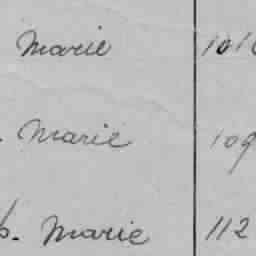 Marie 101
Marie 109
p. Marie 112